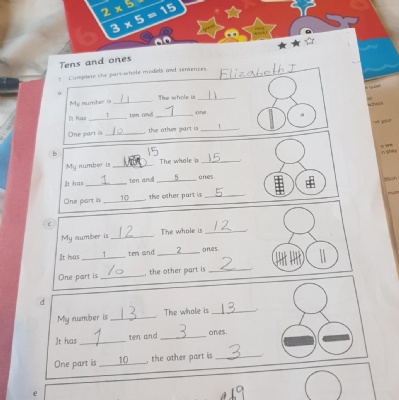 2 x 5
3 x 5 = 15
Tens and ones
1 Complete the part-whole models and sentences.
Elizabeth J
a
My number is 11 The whole is 11
It has 1 ten and 1 one.
One part is 10 the other part is 1
b
15
My number is The whole is 15
It has 1 ten and 5 ones
One part is 10 the other part is 5
c
My number is 12 The whole is 12
It has 1 ten and 2 ones.
One part is 10 the other part is 2
d
My number is 13 The whole is 13
It has 1 ten and 3 ones.
One part is 10 the other part is 3
e